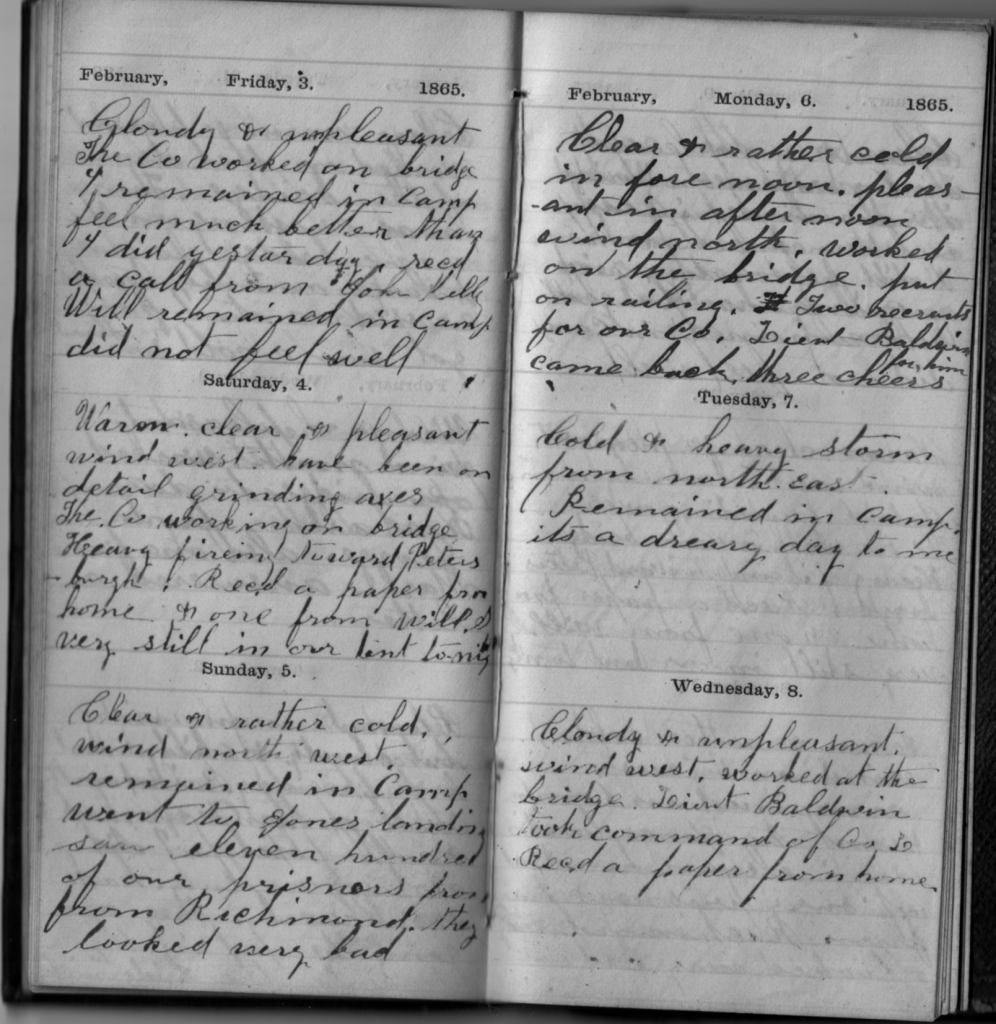 February, Friday, 3. 1865.
Cloudy & unpleasant
The Co worked on bridge
I remained in Camp
feel much better than
I did yestarday, recd
a call from Tom
Will remained in Camp
did not feel well
Saturday, 4.
Warm. clear & pleasant
wind west. have been on
detail grinding axes
The Co working on bridge
Heavy fireing toward Peters
-burgh. Recd a paper from
home & one from Will. S
very still in our tent to-nig
Sunday, 5.
Clear & rather cold.
wind north west.
remained in Camp
went to Jones landing
saw eleven hundred
of our prisners from
from Richmond. they
looked very bad
February, Monday, 6. 1865.
Clear & rather cold
in fore noon. pleas-
-ant in after noon
wind north. worked
on the bridge. put
on railing. Two recruits
for our Co. Lieut Baldwin
came back. three cheers for him
Tuesday, 7.
Cold & heavy storm
from north. East.
Remained in Camp.
its a dreary day to me
Wednesday, 8.
Cloudy & unpleasant.
wind west. worked at the
bridge. Lieut Baldwin
took command of Co I
Recd a paper from home